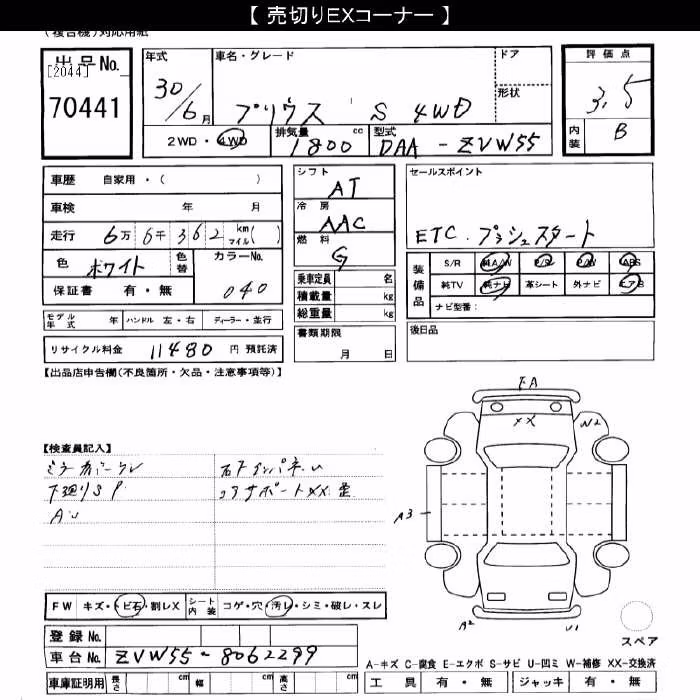 【 売切りEXコーナー 】
(複合機)対応用紙
出品No.
[2044]
70441
年式
30/6月
車名・グレード
プリウス S 4WD
ドア
形状
評価点
3.5
内装 B
2WD・4WD
排気量 1800 cc
型式 DAA-ZVW55
車歴 自家用・( )
車検 年 月
走行 6万6千362 km マイル( )
色 ホワイト
色替
カラーNo. 040
保証書 有・無
モデル年式 年 ハンドル 左・右 ディーラー・並行
リサイクル料金 11480 円 預託済
シフト AT
冷房 AAC
燃料 G
乗車定員 名
積載量 kg
総重量 kg
書類期限
月 日
セールスポイント
ETC. プッシュスタート
装備品
S/R 純A/W P/S P/W ABS
純TV 純ナビ 革シート 外ナビ エアB
ナビ型番:
後日品
【出品店申告欄(不良箇所・欠品・注意事項等)】
【検査員記入】
下廻りSP
コアサポートXX 歪
FA
XX
W2
A3
A2
U1
FW キズ・トビ石・割レX
シート内装 コゲ・穴・汚レ・シミ・破レ・スレ
登録No.
車台No. ZVW55-8062299
車庫証明用 長さ cm 幅 cm 高さ cm
スペア
A-キズ C-腐食 E-エクボ S-サビ U-凹ミ W-補修 XX-交換済
工具 有・無 ジャッキ 有・無